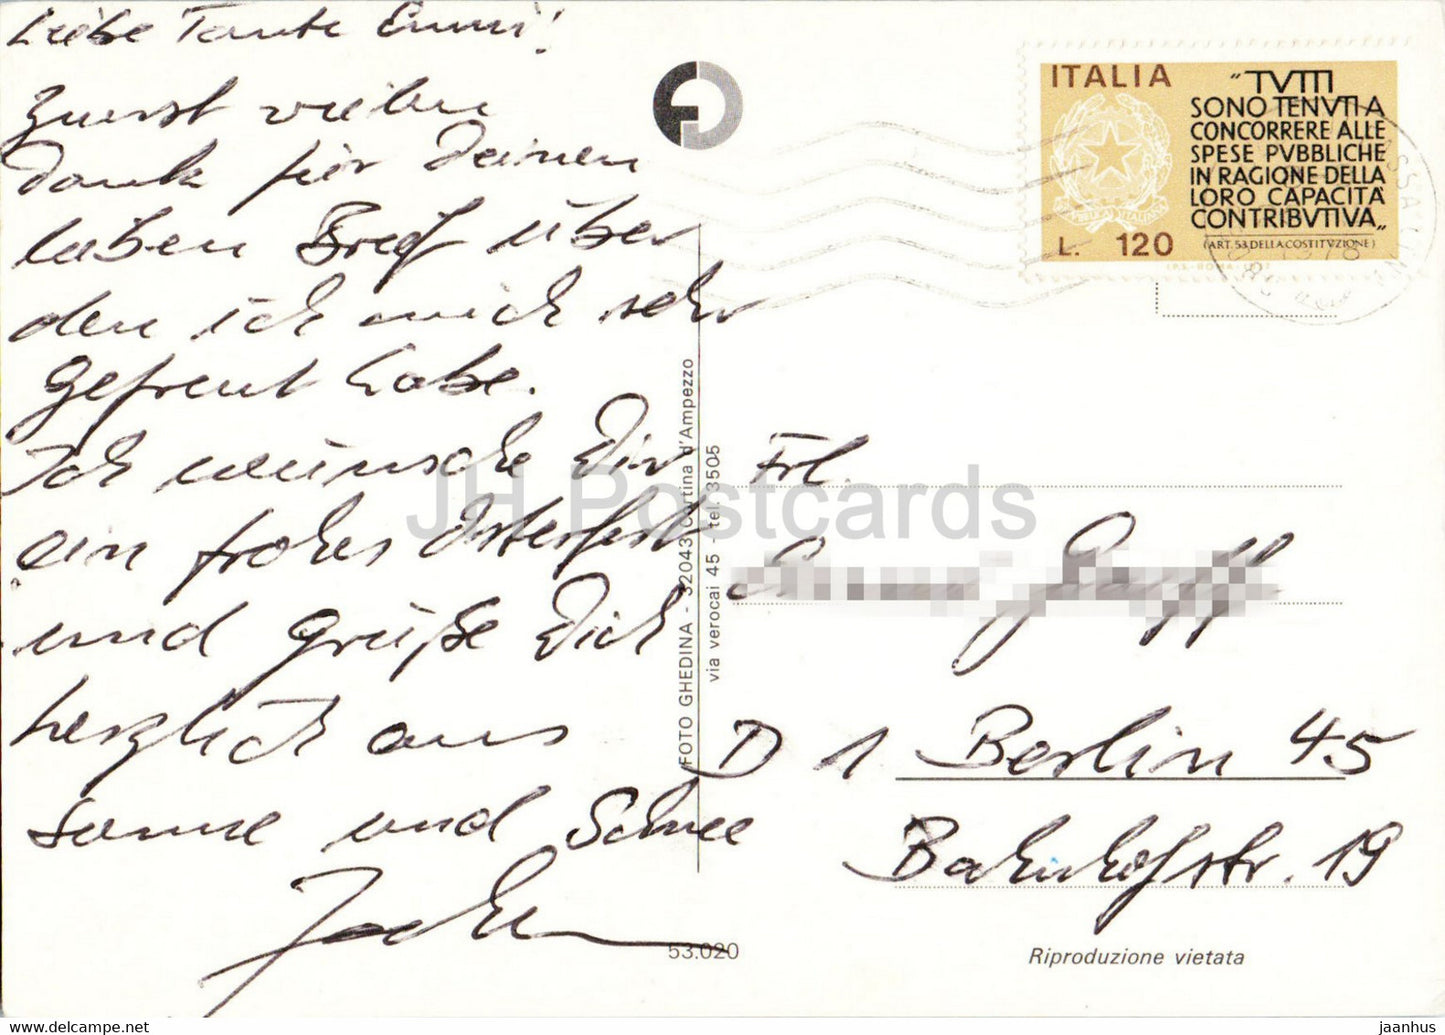 Liebe Tante Emmi!
Zuerst vielen
Dank für Deinen
lieben Brief über
den ich mich sehr
gefreut habe.
Ich wünsche Dir
ein frohes Osterfest
und grüße Dich
herzlich aus
Sonne und Schnee
Jochen
ITALIA
"TVTTI
SONO TENVTI A
CONCORRERE ALLE
SPESE PVBBLICHE
IN RAGIONE DELLA
LORO CAPACITÀ
CONTRIBVTIVA„
(ART. 53 DELLA COSTITVZIONE)
L. 120
FOTO GHEDINA - 32043 Cortina d'Ampezzo
via verocai 45 - tel. 3505
Frl.
D 1 Berlin 45
Bahnhofstr. 19
53.020
Riproduzione vietata
JH Postcards
jaanhus